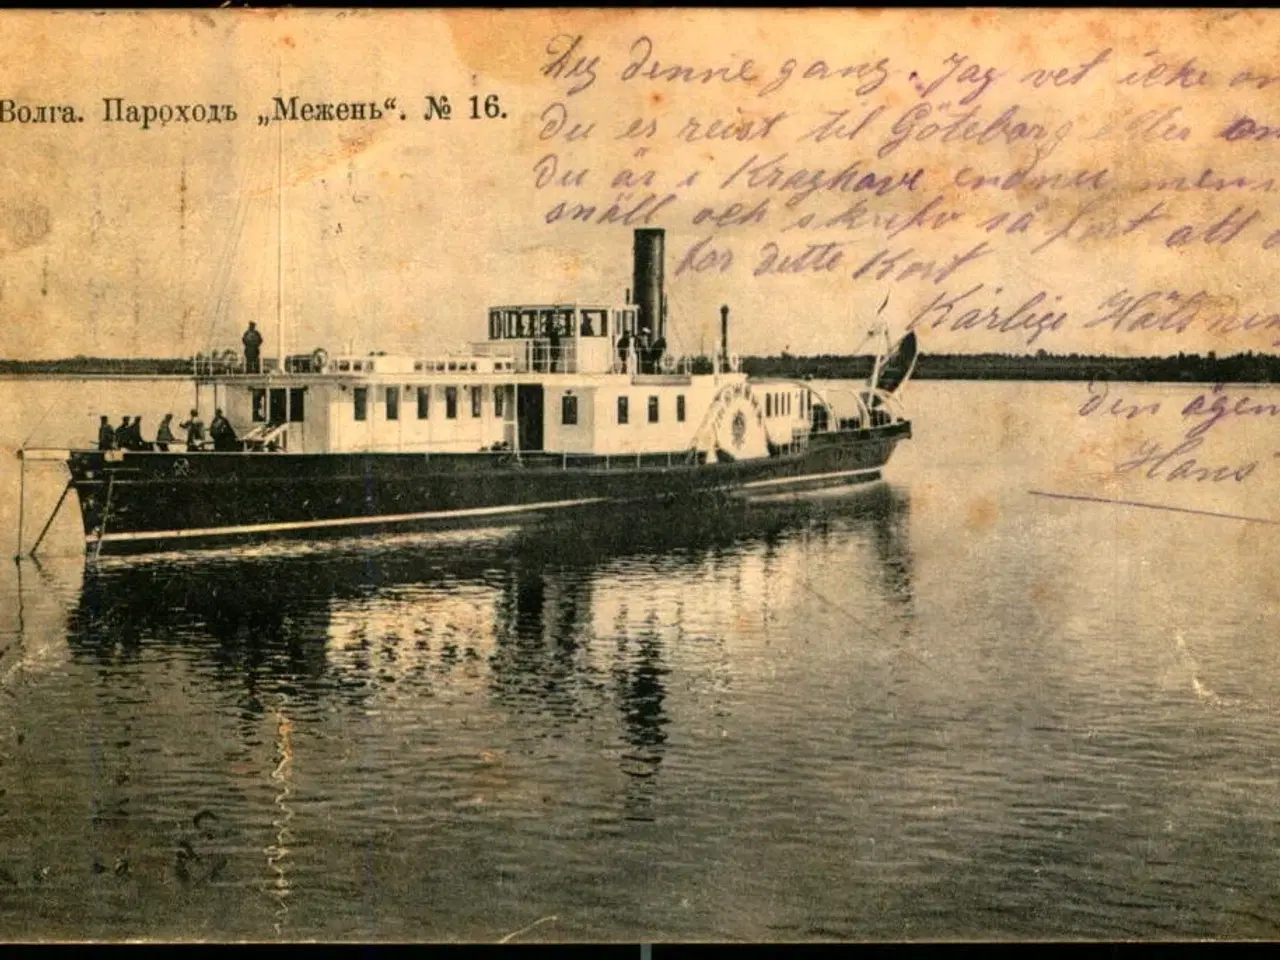 Волга. Пароходъ „Межень“. № 16.
Dig denne gang. Jag vet icke om
du er reist til Göteborg eller om
du är i Kragharø endnu men
snäll och skrifv så fort att
for dette Kort
Kärlige Hälsning
den egen
Hans